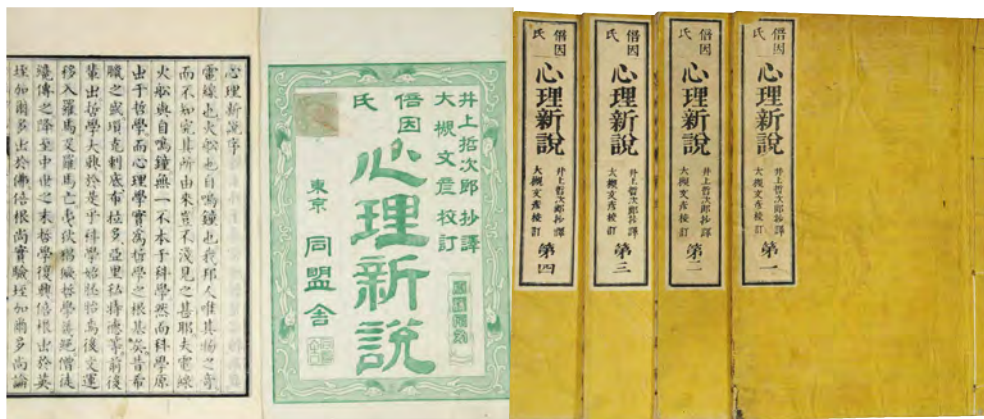 心理新說序
電線也火船也自鳴鐘也我邦人唯其物之奇
而不知究其所由來豈不淺見之甚耶夫電線
火船與自鳴鐘無一不本于科學然而科學原
出于哲學而心理學實爲哲學之根基矣昔希
臘之盛瑣克刺底布拉多亞里私特德等前後
輩出哲學大興於是乎科學始胚胎焉後文運
移入羅馬及羅馬亡夷狄猖獗哲學絕僧徒
纔傳之降至中世之末哲學復興倍根出於英
垤加爾多出於佛倍根尚實驗垤加爾多尚論
井上哲次郎抄譯
大槻文彦校訂
倍因氏
心理新說
東京 同盟舍
倍因氏
心理新說
井上哲次郎抄譯
大槻文彦校訂
第一
倍因氏
心理新說
井上哲次郎抄譯
大槻文彦校訂
第二
倍因氏
心理新說
井上哲次郎抄譯
大槻文彦校訂
第三
倍因氏
心理新說
井上哲次郎抄譯
大槻文彦校訂
第四